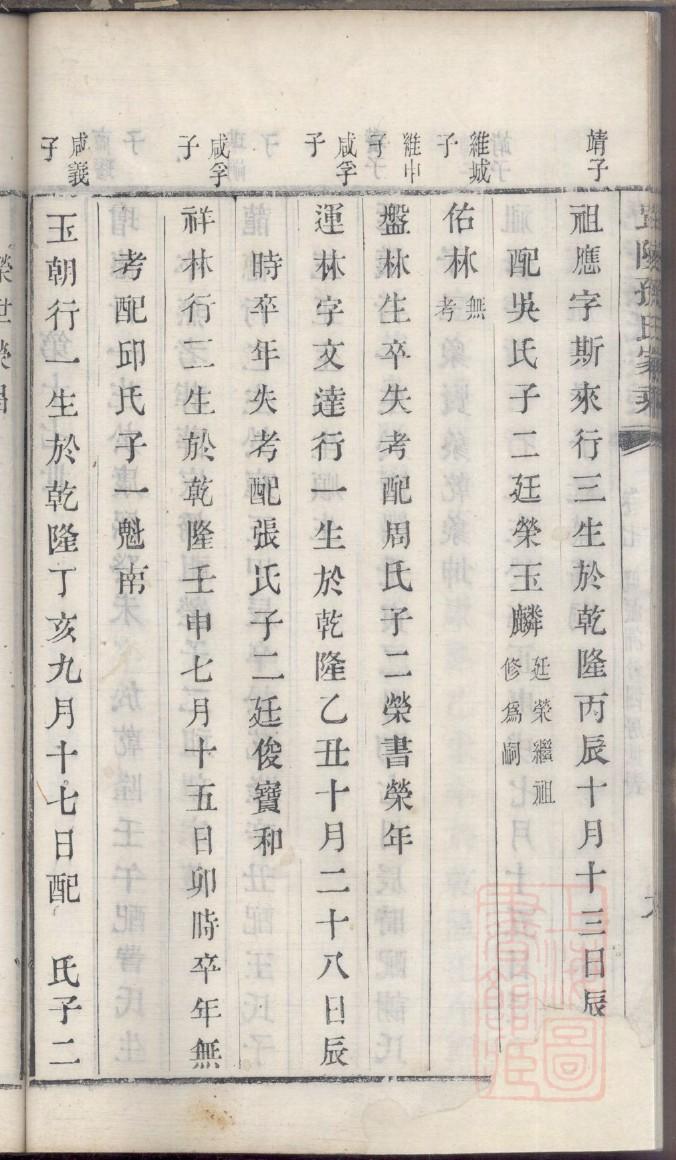 陵孫氏家乘
靖子
祖應字斯來行三生於乾隆丙辰十月十三日辰
配吳氏子二廷榮玉麟廷榮繼祖修爲嗣
維城子
佑林無考
維中子
盤林生卒失考配周氏子二榮書榮年
咸孚子
運林字文達行一生於乾隆乙丑十月二十八日辰
時卒年失考配張氏子二廷俊寶和
咸孚子
祥林行三生於乾隆壬申七月十五日卯時卒年無
考配邱氏子一魁南
咸義子
玉朝行一生於乾隆丁亥九月十七日配　氏子二
榮世榮
上海圖書館藏